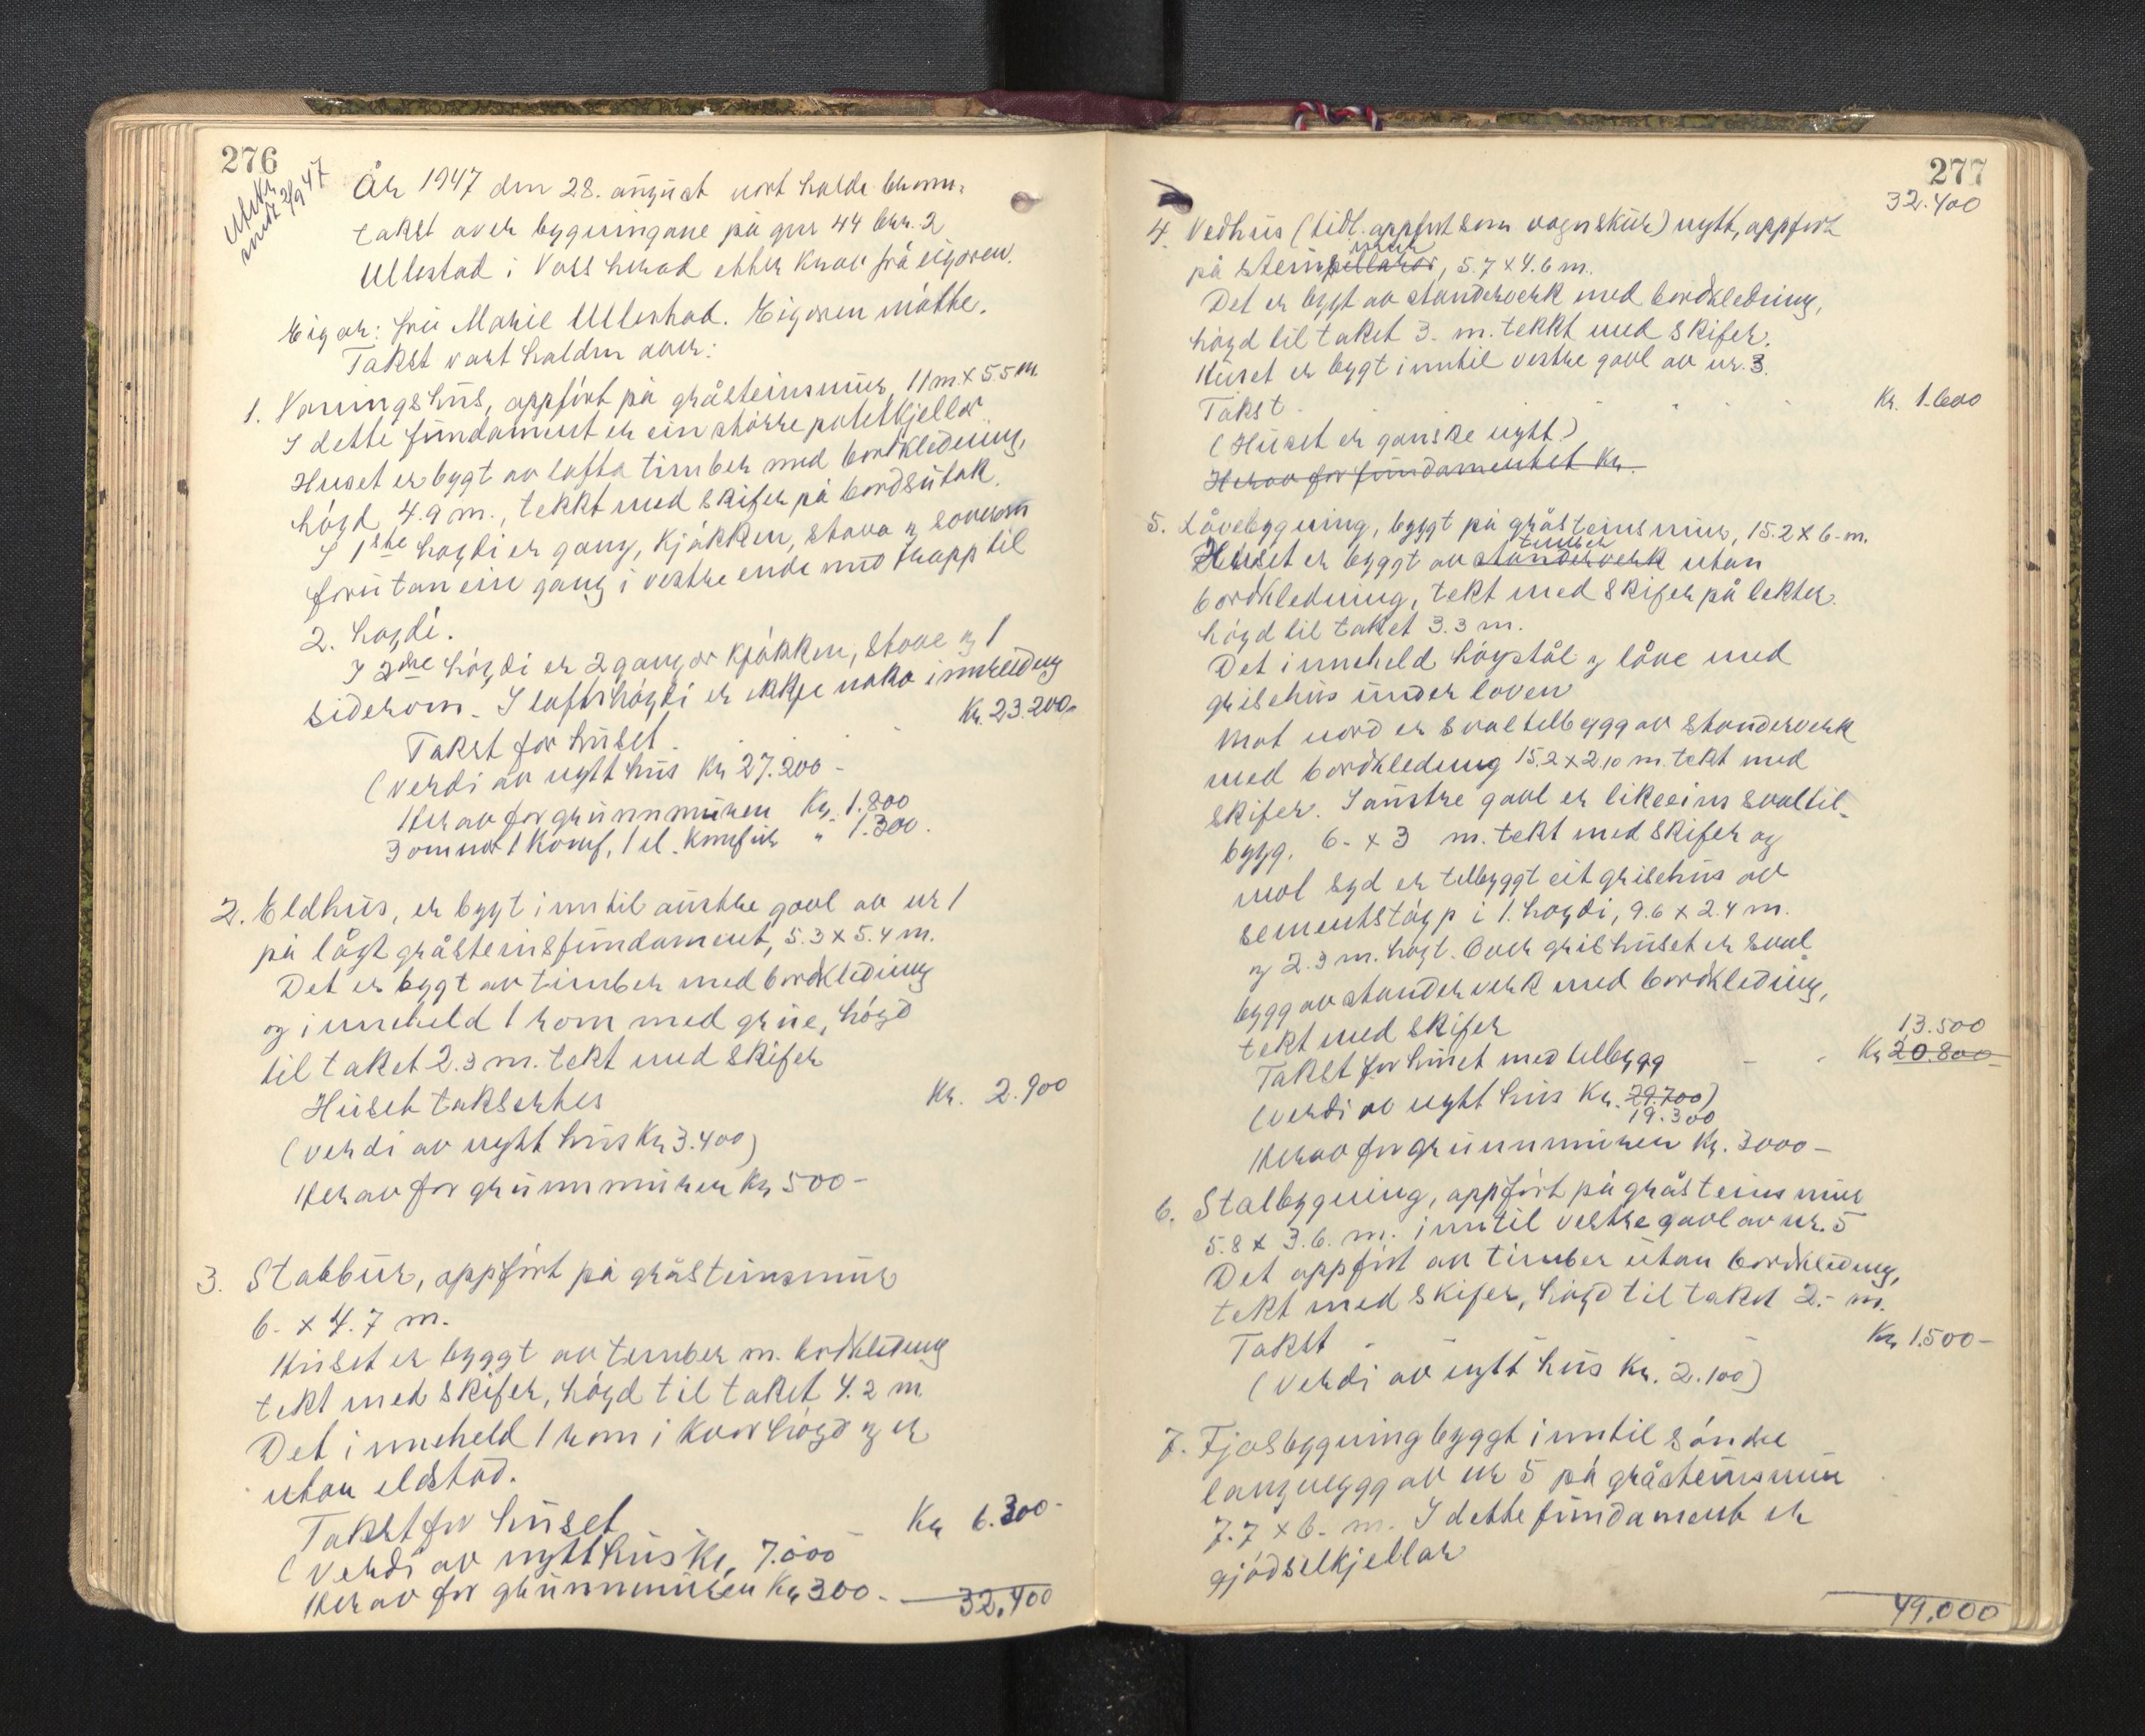 276
Utskr.
sendt 2/9 47
År 1947 den 28. august vart halde brann-
takst over bygningane på gnr 44 bnr. 2
Ullestad i Voss herad etter krav frå eigaren.
Eigar: fru Marie Ullestad. Eigaren møtte.
Takst vart halden over:
1. Våningshus, oppført på gråsteinsmur, 11 m x 5.5 m
I dette fundament er ein større potetkjellar
Huset er bygt av lafta timber med bordkledning,
høgd 4.9 m., tekkt med skifer på bordsutak.
I 1ste høgdi er gang, kjøkken, stova og soverom
forutan ein gang i vestre ende med trapp til
2. høgdi.
I 2dre høgdi er 2 gangar kjøkken, stove og 1
siderom. I loftshøgdi er ikkje noko innreiding
Takst for huset
Kr. 23.200,-
(Verdi av nytt hus Kr 27.200 -
Herav for grunnmuren Kr. 1.800
3 omnar 1 komf, 1 el. komfur " 1.300.
2. Eldhus, er bygt inntil austre gavl av nr 1
på lågt gråsteinsfundament, 5.3 x 5.4 m.
Det er bygt av timber med bordkledning
og inneheld 1 rom med grue, høgd
til taket 2.3 m. tekt med skifer
Huset taksertes
Kr. 2.900
(Verdi av nytt hus Kr 3.400)
Herav for grunnmuren Kr 500 -
3. Stabbur, oppført på gråsteinsmur
6. x 4.7 m.
Huset er byggt av timber m. bordkledning
tekt med skifer, høgd til taket 4.2 m
Det inneheld 1 rom i kvar høgd og er
utan eldstad.
Takst for huset
Kr 6.300 -
(Verdi av nytt hus Kr. 7.000 -
Herav for grunnmuren Kr 300. -
32.400
277
32.400
4. Vedhus (tidl. oppført som vognskur) nytt, oppført
mur
på steinpillarar, 5.7 x 4.6 m.
Det er bygt av standerverk med bordkledning,
høgd til taket 3. m. tekkt med skifer.
Huset er bygt inntil vestre gavl av nr. 3.
Takst
Kr. 1.600
(Huset er ganske nytt)
Herav for fundamentet Kr.
5. Låvebygning, byggt på gråsteinsmur, 15.2 x 6 - m.
timber
Huset er byggt av standerverk utan
bordkledning, tekt med skifer på lekter.
høgd til taket 3.3 m.
Det inneheld høystål og låve med
grisehus under loven
Mot nord er svaltilbygg av standerverk
med bordkledning 15.2 x 2.10 m. tekt med
skifer. I austre gavl er likeeins svaltil-
bygg, 6. x 3 m. tekt med skifer og
mot syd er tilbyggt eit grisehus av
sementstøyp i 1. høgdi, 9.6 x 2.4 m.
og 2.3 m. høgt. Over grishuset er sval
bygg av standerverk med bordkledning,
tekt med skifer
13.500
Takst for huset med tilbygg
Kr 20.800
(Verdi av nytt hus Kr. 29.700)
19.300
Herav for grunnmuren Kr. 3000 -
6. Stalbygning, oppført på gråsteinsmur
5.8 x 3.6. m. inntil vestre gavl av nr. 5
Det oppført av timber utan bordkledning,
tekt med skifer, høgd til taket 2.- m.
Takst
Kr 1.500 -
(Verdi av nytt hus Kr. 2.100)
7. Fjøsbygning byggt inntil søndre
langvegg av nr 5 på gråsteinsmur
7.7 x 6. m. I dette fundament er
gjødselkjellar
49.000